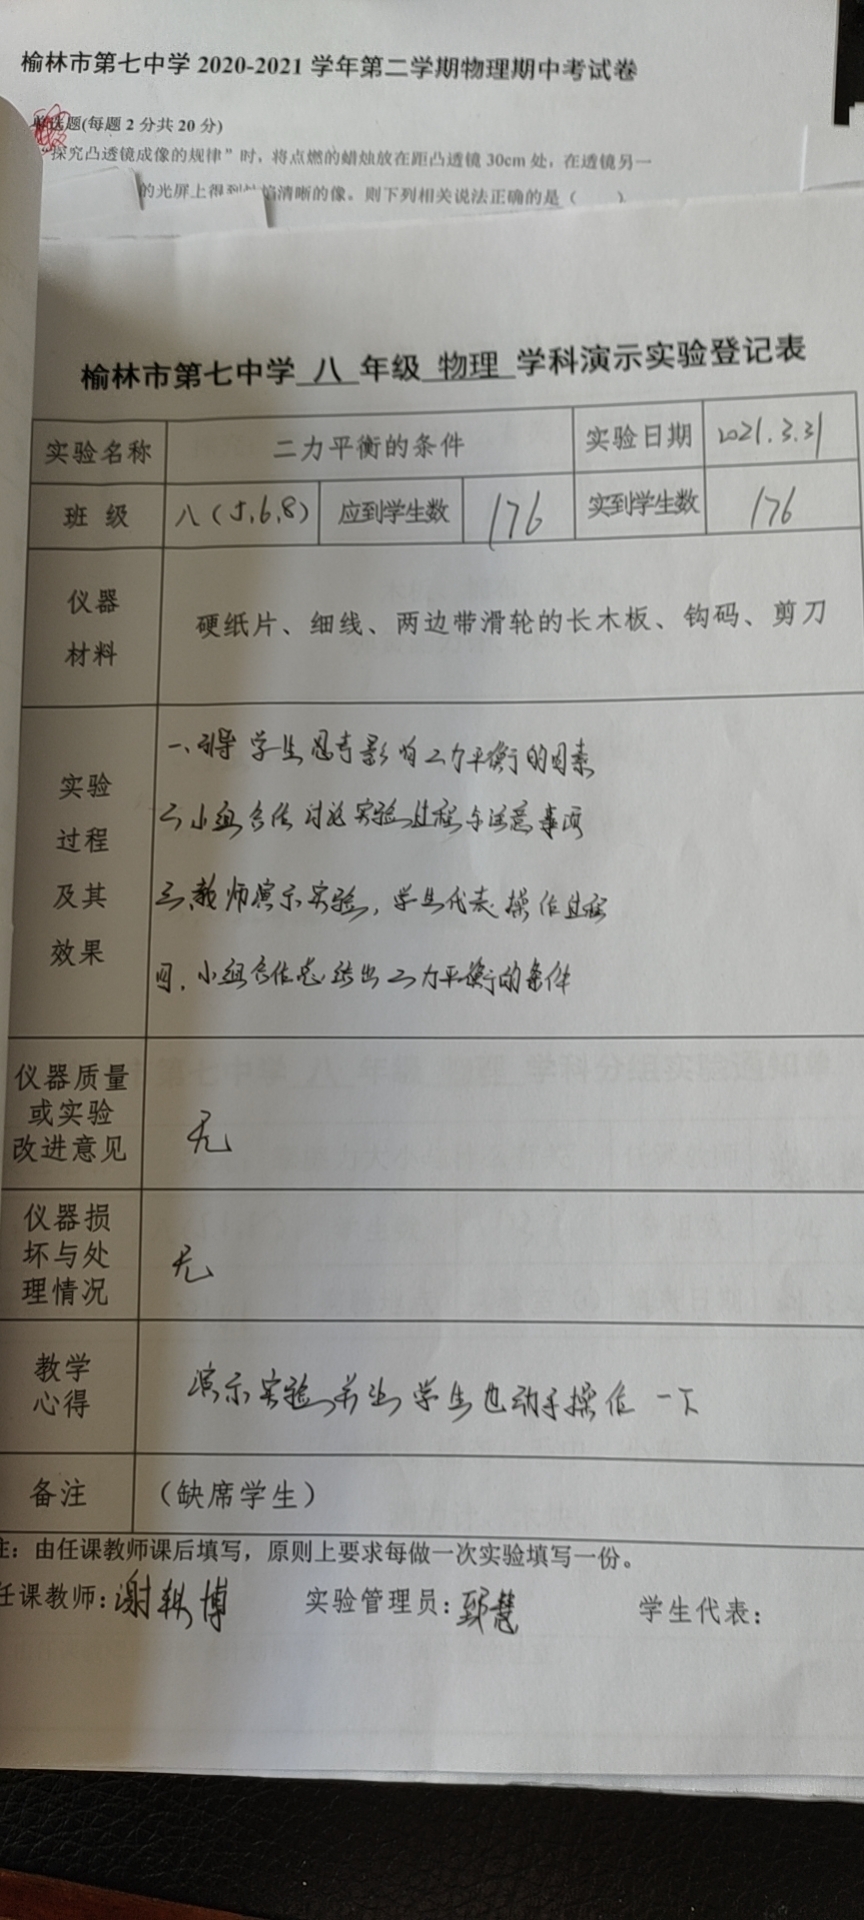 榆林市第七中学 2020-2021 学年第二学期物理期中考试卷
单选题(每题 2 分共 20 分)
“探究凸透镜成像的规律”时，将点燃的蜡烛放在距凸透镜 30cm 处，在透镜另一
的光屏上得到烛焰清晰的像。则下列相关说法正确的是（ ）
榆林市第七中学 八 年级 物理 学科演示实验登记表
实验名称 二力平衡的条件 实验日期 2021.3.31
班 级 八（5,6,8） 应到学生数 176 实到学生数 176
仪器
材料
硬纸片、细线、两边带滑轮的长木板、钩码、剪刀
实验
过程
及其
效果
一、引导学生思考影响二力平衡的因素
二、小组合作讨论实验过程与注意事项
三、教师演示实验，学生代表操作过程
四、小组合作总结出二力平衡的条件
仪器质量
或实验
改进意见
无
仪器损
坏与处
理情况
无
教学
心得
演示实验并让学生也动手操作一下
备注 （缺席学生）
注：由任课教师课后填写，原则上要求每做一次实验填写一份。
任课教师：谢 博 实验管理员： 慧 学生代表：